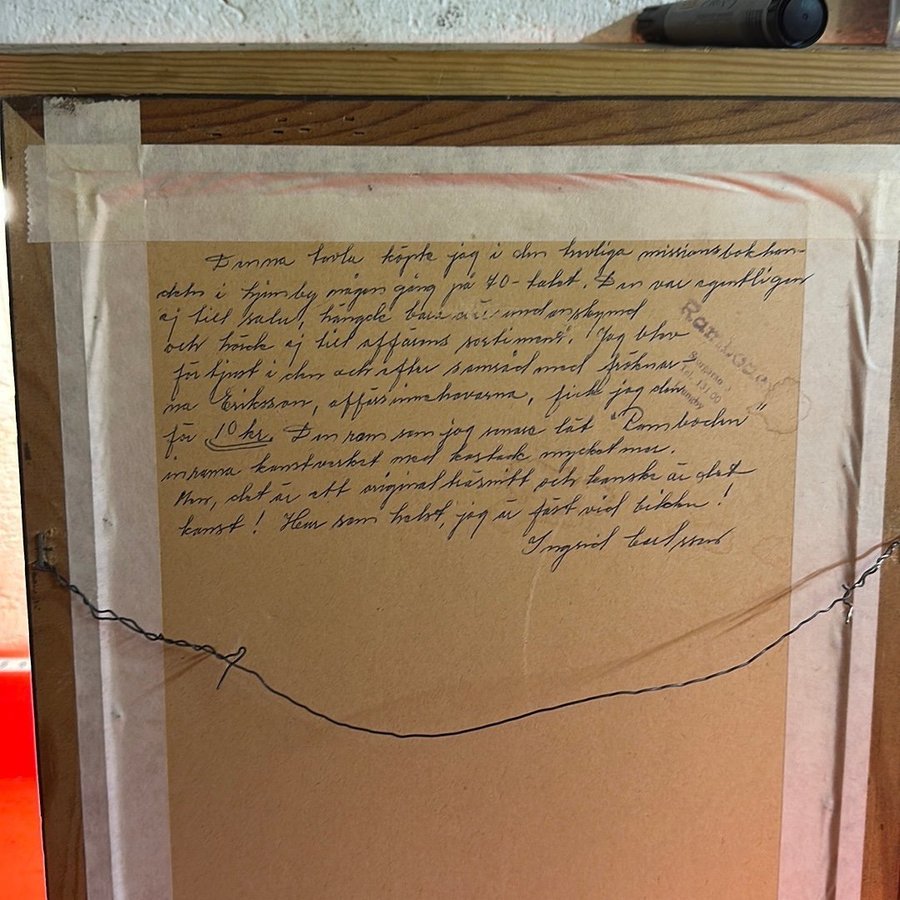 Denna tavla köpte jag i den trevliga missionsbokhan-
deln i Ljungby någon gång på 40-talet. Den var egentligen
ej till salu, hängde bara där undanskymd
och hörde ej till affärens sortiment. Jag blev
förtjust i den och efter samråd med fröknar-
na Eriksson, affärsinnehavarna, fick jag den
för 10 kr. Den ram som jag senare lät "Ramboden"
inrama konstverket med kostade mycket mer.
Men, det är ett original träsnitt och kanske är det
konst! Hur som helst, jag är fäst vid bilden!
Ingrid Carlsson
Ramboden
Tel. 131 00
Ljungby